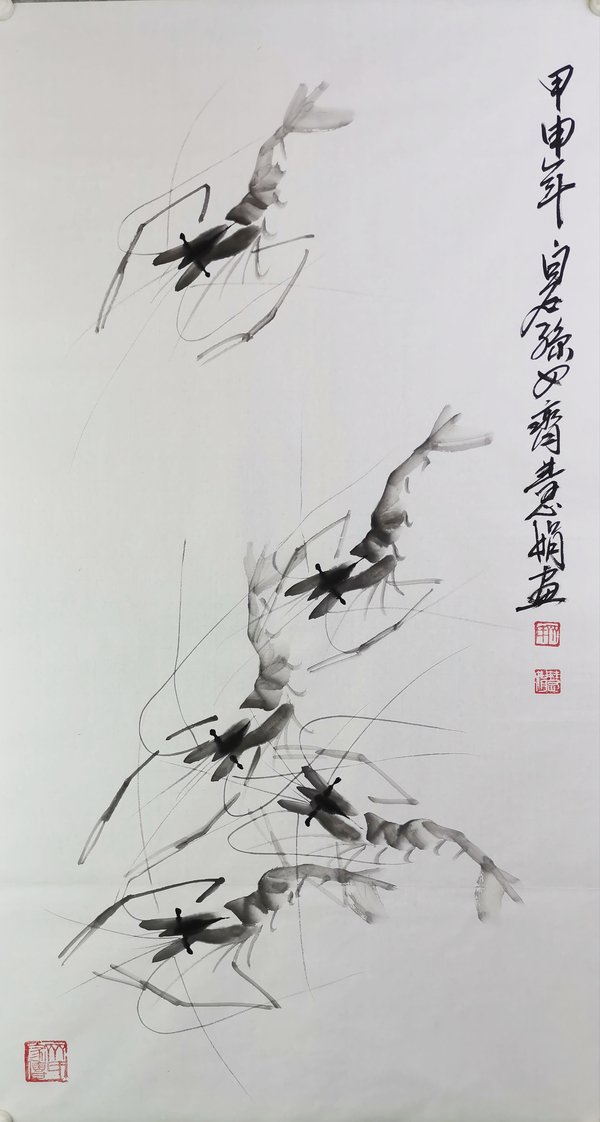 甲申年白石孫女齊慧娟画